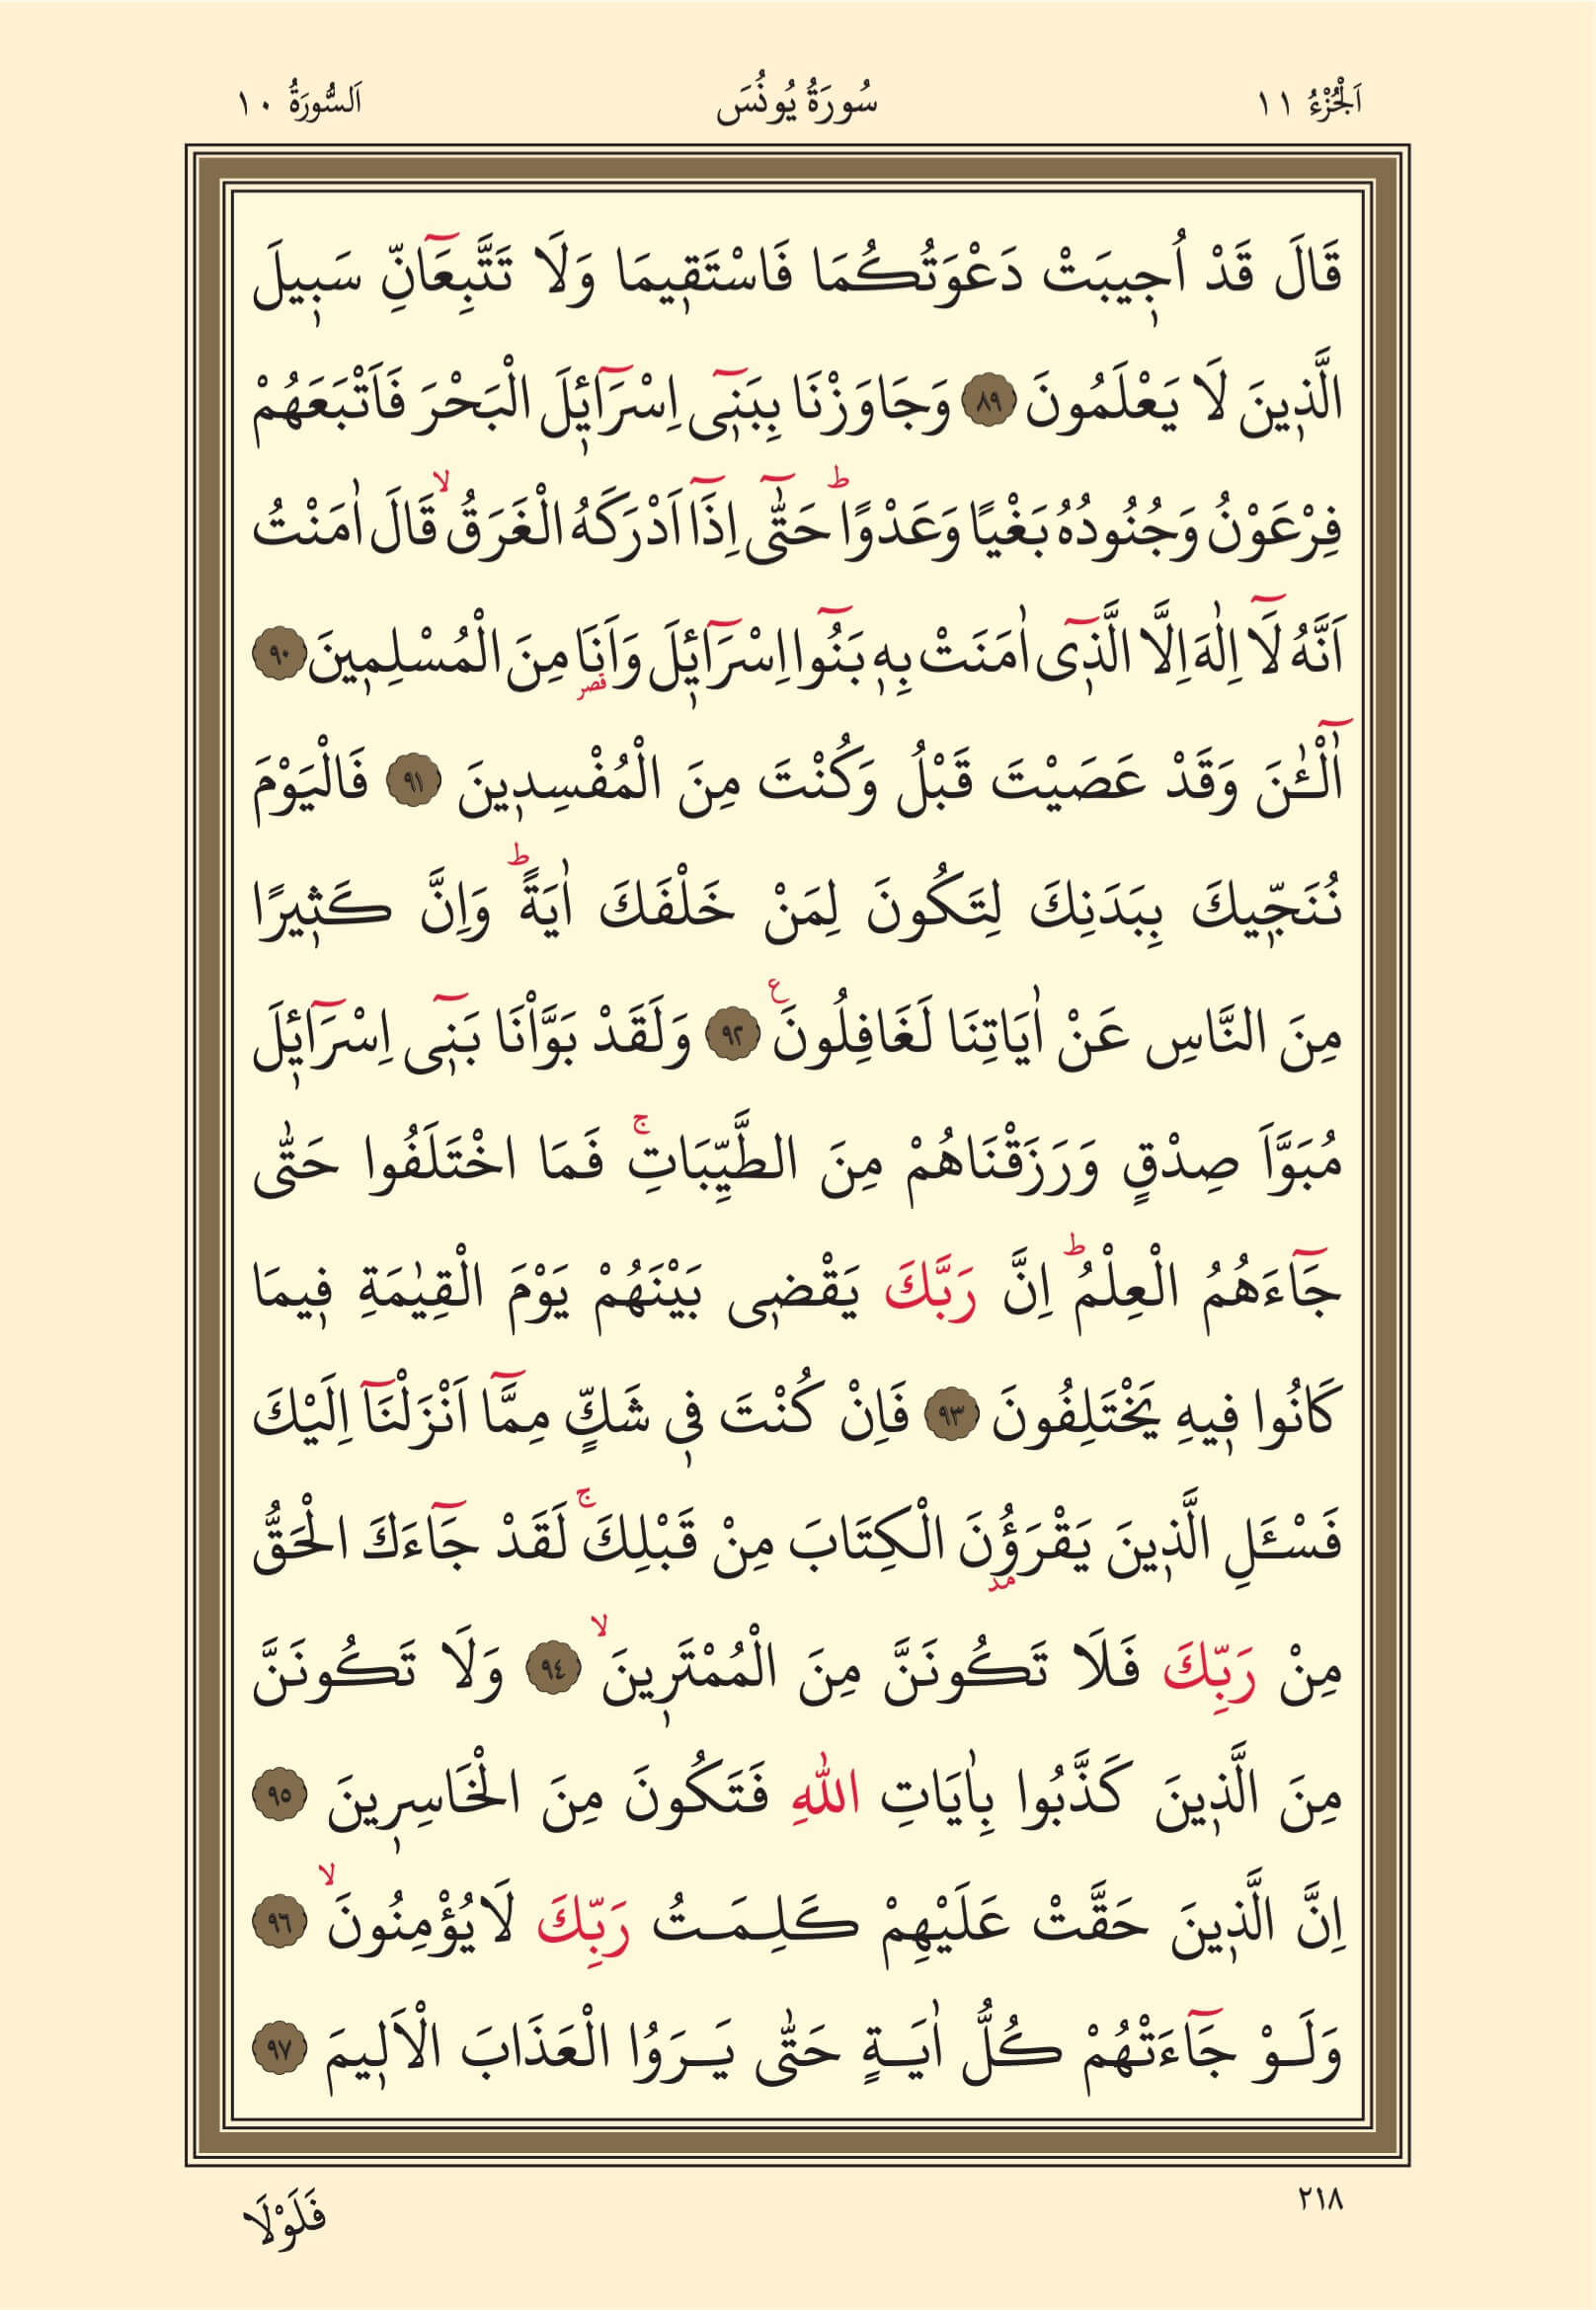 اَلْجُزْءُ ١١
سُورَةُ يُونُسَ
اَلسُّورَةُ ١٠
قَالَ قَدْ اُج۪يبَتْ دَعْوَتُكُمَا فَاسْتَق۪يمَا وَلَا تَتَّبِعَٓانِّ سَب۪يلَ
الَّذ۪ينَ لَا يَعْلَمُونَ ﴿٨٩﴾ وَجَاوَزْنَا بِبَن۪ٓي اِسْرَٓائ۪لَ الْبَحْرَ فَاَتْبَعَهُمْ
فِرْعَوْنُ وَجُنُودُهُ بَغْيًا وَعَدْوًاۜ حَتّٰٓى اِذَٓا اَدْرَكَهُ الْغَرَقُۙ قَالَ اٰمَنْتُ
اَنَّهُ لَٓا اِلٰهَ اِلَّا الَّذ۪ٓي اٰمَنَتْ بِه۪ بَنُٓوا اِسْرَٓائ۪لَ وَاَنَا۬ مِنَ الْمُسْلِم۪ينَ ﴿٩٠﴾
آٰلْـٰٔنَ وَقَدْ عَصَيْتَ قَبْلُ وَكُنْتَ مِنَ الْمُفْسِد۪ينَ ﴿٩١﴾ فَالْيَوْمَ
نُنَجّ۪يكَ بِبَدَنِكَ لِتَكُونَ لِمَنْ خَلْفَكَ اٰيَةًۜ وَاِنَّ كَث۪يرًا
مِنَ النَّاسِ عَنْ اٰيَاتِنَا لَغَافِلُونَ۟ ﴿٩٢﴾ وَلَقَدْ بَوَّاْنَا بَن۪ٓي اِسْرَٓائ۪لَ
مُبَوَّاَ صِدْقٍ وَرَزَقْنَاهُمْ مِنَ الطَّيِّبَاتِۚ فَمَا اخْتَلَفُوا حَتّٰى
جَٓاءَهُمُ الْعِلْمُۜ اِنَّ رَبَّكَ يَقْض۪ي بَيْنَهُمْ يَوْمَ الْقِيٰمَةِ ف۪يمَا
كَانُوا ف۪يهِ يَخْتَلِفُونَ ﴿٩٣﴾ فَاِنْ كُنْتَ ف۪ي شَكٍّ مِمَّٓا اَنْزَلْنَٓا اِلَيْكَ
فَسْـَٔلِ الَّذ۪ينَ يَقْرَؤُ۫نَ الْكِتَابَ مِنْ قَبْلِكَۚ لَقَدْ جَٓاءَكَ الْحَقُّ
مِنْ رَبِّكَ فَلَا تَكُونَنَّ مِنَ الْمُمْتَر۪ينَۙ ﴿٩٤﴾ وَلَا تَكُونَنَّ
مِنَ الَّذ۪ينَ كَذَّبُوا بِاٰيَاتِ اللّٰهِ فَتَكُونَ مِنَ الْخَاسِر۪ينَ ﴿٩٥﴾
اِنَّ الَّذ۪ينَ حَقَّتْ عَلَيْهِمْ كَلِمَتُ رَبِّكَ لَا يُؤْمِنُونَۙ ﴿٩٦﴾
وَلَوْ جَٓاءَتْهُمْ كُلُّ اٰيَةٍ حَتّٰى يَرَوُا الْعَذَابَ الْاَل۪يمَ ﴿٩٧﴾
٢١٨
فَلَوْلَا